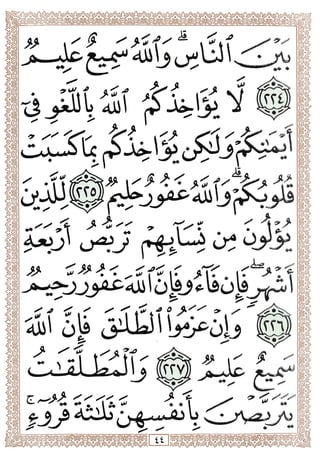 بَيْنَ ٱلنَّاسِۗ وَٱللَّهُ سَمِيعٌ عَلِيمٌ
٢٢٤ لَّا يُؤَاخِذُكُمُ ٱللَّهُ بِٱللَّغْوِ فِىٓ
أَيْمَـٰنِكُمْ وَلَـٰكِن يُؤَاخِذُكُم بِمَا كَسَبَتْ
قُلُوبُكُمْۗ وَٱللَّهُ غَفُورٌ حَلِيمٌ ٢٢٥ لِّلَّذِينَ
يُؤْلُونَ مِن نِّسَآئِهِمْ تَرَبُّصُ أَرْبَعَةِ
أَشْهُرٍۖ فَإِن فَآءُو فَإِنَّ ٱللَّهَ غَفُورٌ رَّحِيمٌ
٢٢٦ وَإِنْ عَزَمُوا۟ ٱلطَّلَـٰقَ فَإِنَّ ٱللَّهَ
سَمِيعٌ عَلِيمٌ ٢٢٧ وَٱلْمُطَلَّقَـٰتُ
يَتَرَبَّصْنَ بِأَنفُسِهِنَّ ثَلَـٰثَةَ قُرُوٓءٍۚ
٤٤